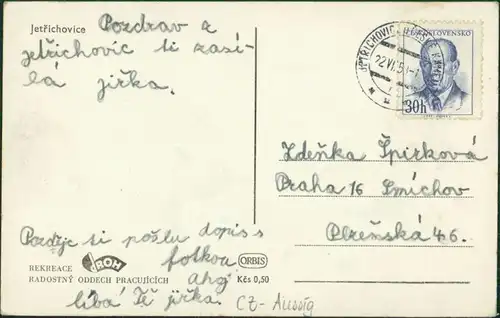 Jetřichovice
Pozdrav z
jetřichovic ti zasí-
lá jirka.
Pozdje ti pošlu dopis s
fotkou
ahoj
líbá Tě jirka.
REKREACE ROH
RADOSTNÝ ODDECH PRACUJÍCÍCH
ORBIS
Kčs 0,50
CZ-Aussig
JETŘICHOVICE
22.VI.5
ČESKOSLOVENSKO
30h
Zdeňka Špirková
Praha 16 Smíchov
Plzeňská 46.